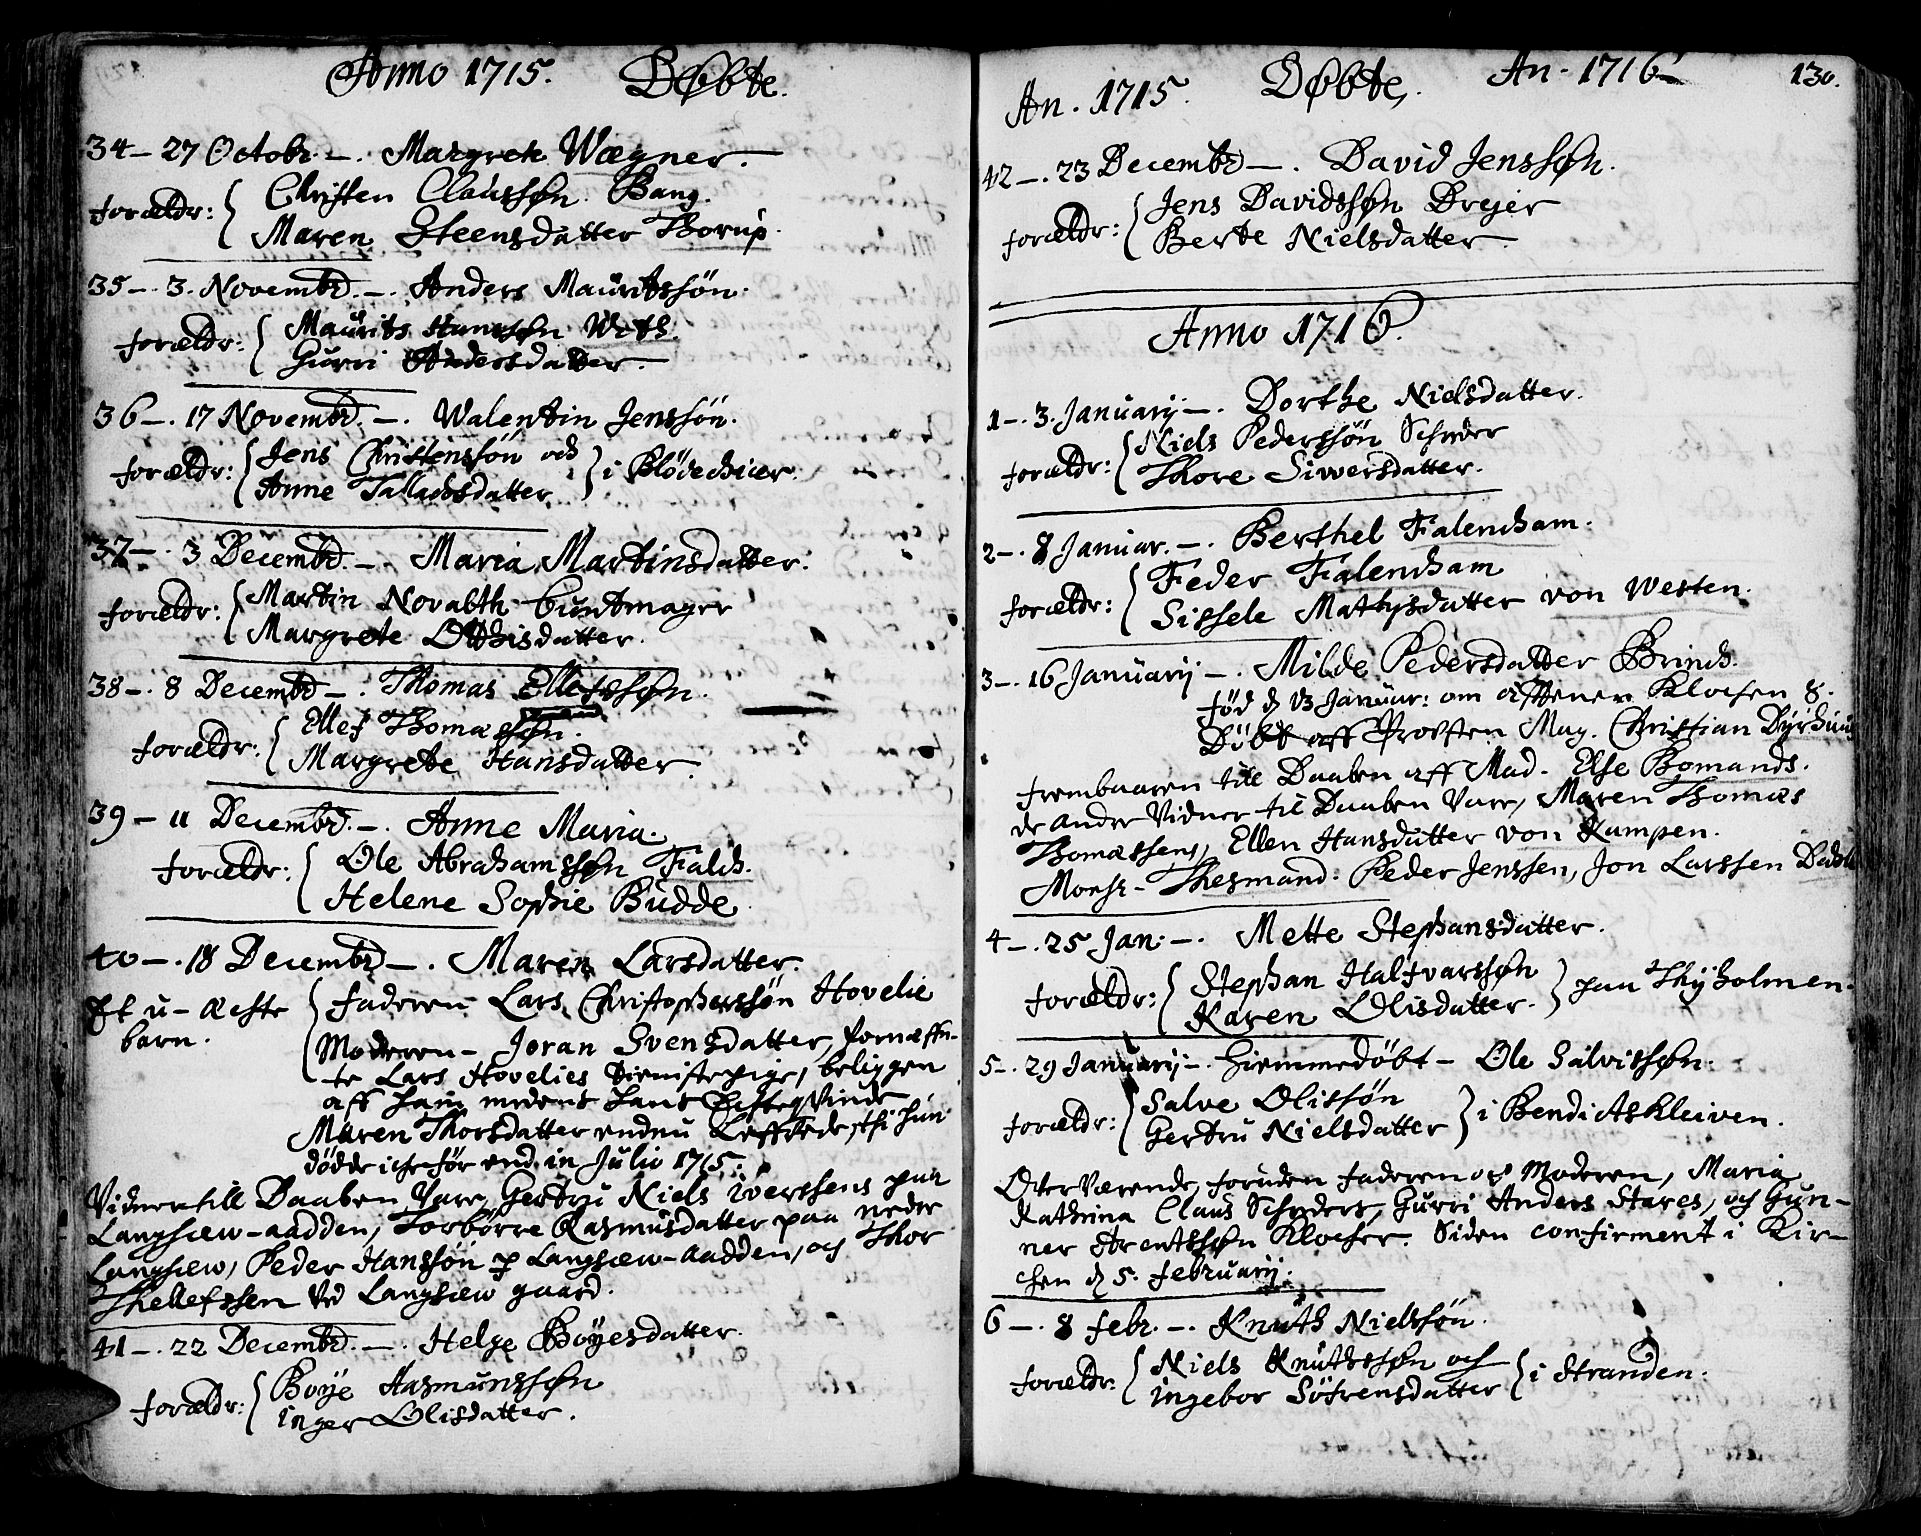 Anno 1715. Døbte.
34 – 27 Octobr. –. Margrete Wægner.
forældr: { Christen Claussøn Bang.
Maren Steensdatter Thorup.
35 –. 3. Novembr. –. Anders Mauritssøn.
forældr: { Maurits Hanssøn
Gurri Andersdatter.
36 –. 17 Novembr. –. Walentin Jenssøn.
forældr: { Jens Christenssøn och } i
Anne
37 –. 3 Decembr. –. Maria Martinsdatter.
forældr: { Martin Novabth
Margrete Otthisdatter.
38 –. 8 Decembr –. Thomas Ellefssøn.
forældr: { Ellef Thomassøn.
Margrete Hansdatter.
39 – 11 Decembr. –. Anne Maria.
forældr: { Ole Abrahamssøn Falch.
Helene Sophie Budde.
40 –. 18 Decembr –. Maren Larsdatter.
Et u-ächte { faderen Lars Christopherssøn Hovelie
barn. Moderen – Joran Svensdatter,
te Lars Hovelies tienistepige, beliggen
aff ham medens hans
Maren Thorsdatter endnu Leffvede, thi hun
dødde iche før end in Julio 1715.
Vidner till Daaben Vare, Gertru Niels Iverssens paa
Langsæw-aadden, Torbørre Rasmusdatter paa neder
Langsæw, Peder Hanssøn p Langsæw-aadden, och Thor
Thellefssen Ved Langsæw gaard.
41 –. 22 Decembr. –. Helge Bøyesdatter.
forældr: { Boye Aasmunssøn
Inger Olisdatter.
An. 1715. Døbte, An – 1716 130.
42 –. 23 Decembr –. David Jenssøn.
forældr: { Jens Davidssøn Drejer
Berte Nielsdatter.
Anno 1716.
1 –. 3. Januarij –. Dorthe Nielsdatter.
forældr: { Niels Pederssøn Schrøder
Thore Siwersdatter.
2 –. 8 Januar. –. Berthel Falencham.
forældr: { Feder Falencham
Sissele Mathysdatter von Westen.
3 –. 16 Januarij –. Milde Pedersdatter Brinch.
fød d 13 Januar: om afftenen Klochen 8.
Døbt aff Provsten Mag. Christian
frembaaren till Daaben aff Mad. Else Bomands.
de andre Vidner til Daaben Vare, Maren Thomas
Thomassens, Ellen Hansdatter von Kampen.
Monsr – Thesmand: Peder Jenssen, Jon Larssen
4 –. 25 Jan: –. Mette Stephansdatter.
forældr: { Stephan Halfvarssøn } paa Thyholmen.
Karen Olisdatter.
5 –. 29 Januarij –. hiemmedøbt – Ole Salvissøn.
forældr: { Salve Olissøn } i Bendi Askleiven.
Gertru Nielsdatter
OverVærende, foruden faderen og Moderen, Maria
Kathrina Claus Schrøders, Gurri Anders Stares, och Gun-
ner Arentssøn Klocher. Siden confirmert i Kir-
chen d 5. februarij.
6 –. 8 febr. –. Knuth Nielssøn.
forældr: { Niels Knuthssøn och } i Stranden.
Ingebor Søfrensdatter